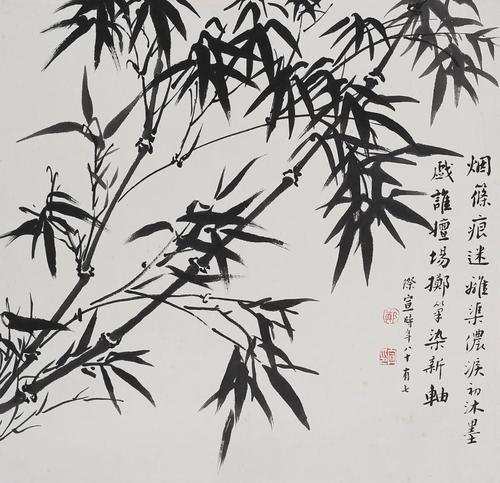 烟篠痕迷離渠儂淚初沐墨
戲誰擅場擲筆染新軸
際宣時年八十有七